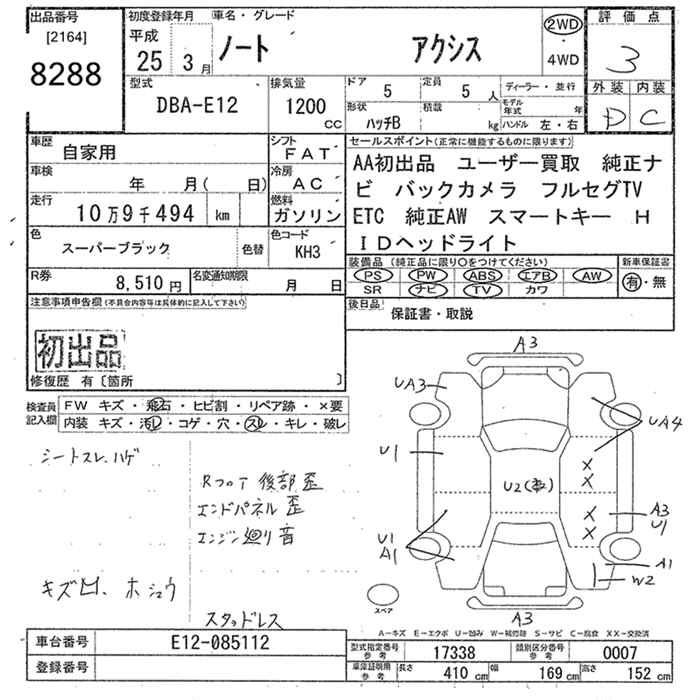 出品番号 初度登録年月 車名・グレード 評価点
[2164] 平成 2WD
8288 25 3月 ノート アクシス 4WD 3
型式 排気量 ドア 定員 ディーラー・並行 外装 内装
DBA-E12 1200 CC 5 5人 モデル年式 年 D C
形状 積載 ハッチB kg ハンドル 左・右
車歴 自家用 シフト FAT セールスポイント(正常に機能するものに限ります)
車検 年 月( 日) 冷房 AC AA初出品 ユーザー買取 純正ナ
走行 10万9千494 km 燃料 ガソリン ビ バックカメラ フルセグTV
ETC 純正AW スマートキー H
色 スーパーブラック 色替 色コード KH3 IDヘッドライト
装備品(純正品に限り○をつけてください) 新車保証書
R券 8,510円 名変通知期限 月 日 PS PW ABS エアB AW 有・無
SR ナビ TV カワ
注意事項申告欄(不具合内容等は具体的に記入して下さい) 後日品 保証書・取説
初出品
修復歴 有〔箇所 〕
検査員記入欄 FW キズ・飛石・ヒビ割・リペア跡・×要
内装 キズ・汚レ・コゲ・穴・スレ・キレ・破レ
シートスレ、ハゲ
後部歪
エンドパネル 歪
エンジン廻り音
キズ凹、ホシュウ
スタッドレス
A3
UA3
UA4
U1
U2
X
X
X
X
A3
U1
U1
A1
A1
W2
A3
スペア
A－キズ E－エクボ U－凹み W－補修跡 S－サビ C－腐食 XX－交換済
車台番号 E12-085112 型式指定番号 参考 17338 類別区分番号 参考 0007
登録番号 車庫証明用 参考 長さ 410 cm 幅 169 cm 高さ 152 cm